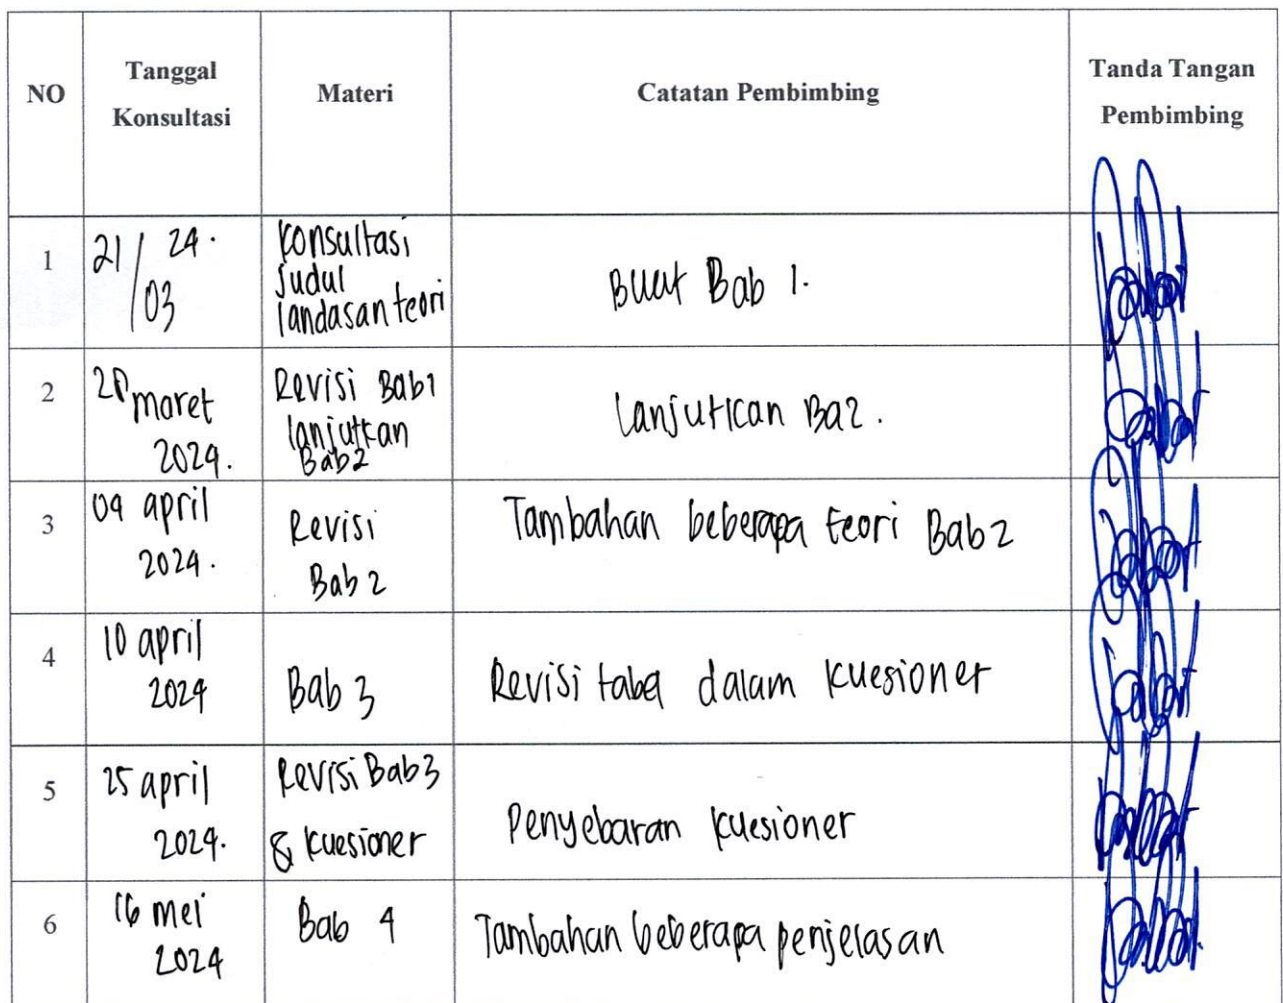 NO
Tanggal
Konsultasi
Materi
Catatan Pembimbing
Tanda Tangan
Pembimbing
1
21/03 24.
Konsultasi
Judul
landasan teori
Buat Bab 1.
2
28 maret
2024.
Revisi Bab1
lanjutkan
Bab2
lanjutkan Ba2.
3
04 april
2024.
Revisi
Bab 2
Tambahan beberapa teori Bab2
4
10 april
2024
Bab 3
Revisi tabel dalam kuesioner
5
25 april
2024.
Revisi Bab3
& kuesioner
Penyebaran kuesioner
6
16 mei
2024
Bab 4
Tambahan beberapa penjelasan